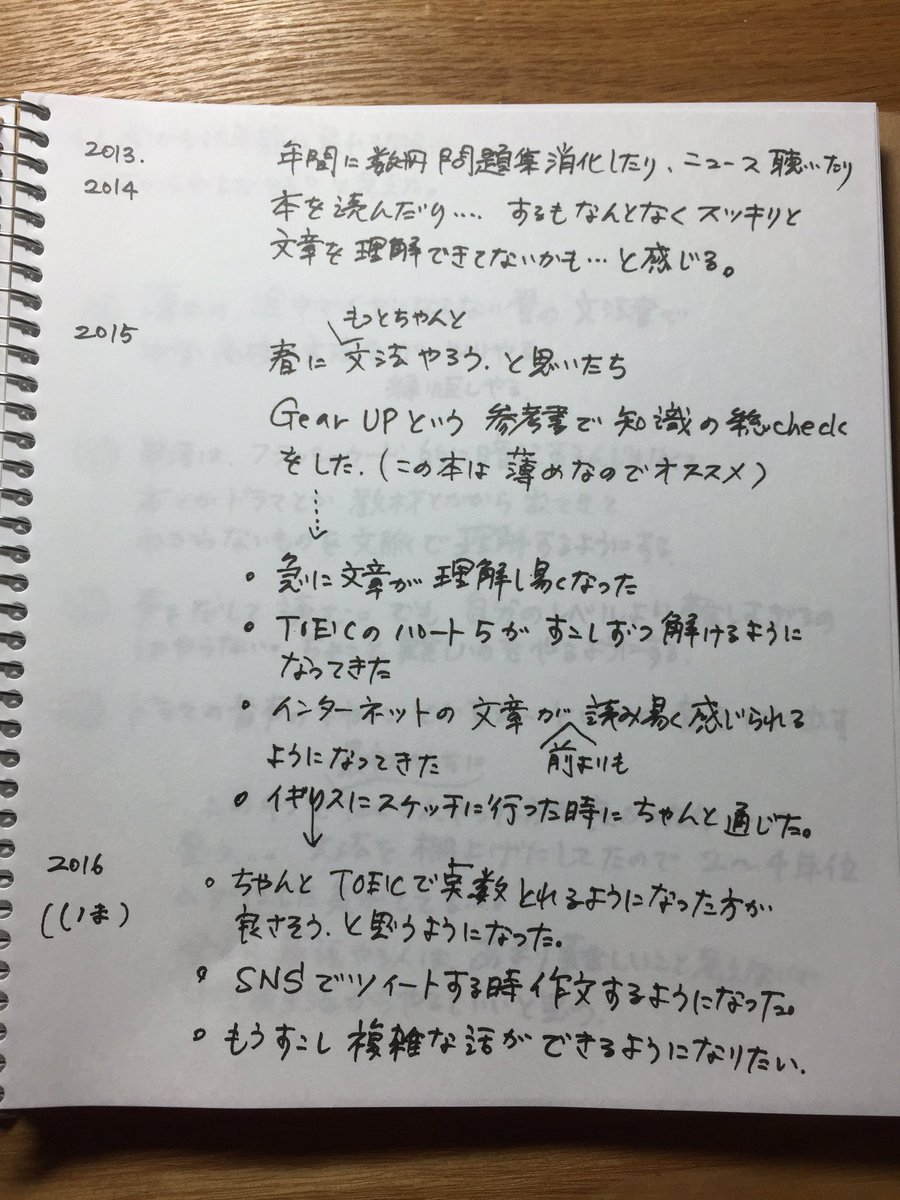 2013. 年間に数冊問題集消化したり、ニュース聴いたり
2014 本を読んだり.... するもなんとなくスッキリと
文章を理解できてないかも…と感じる。
もっとちゃんと
2015 春に文法やろう.と思いたち
Gear UPという参考書で知識の総check
をした.(この本は薄めなのでオススメ)
• 急に文章が理解し易くなった
• TOEICのパート5がすこしずつ解けるように
なってきた
• インターネットの文章が読み易く感じられる
ようになってきた 前よりも
• イギリスにスケッチに行った時にちゃんと通じた。
2016 • ちゃんとTOEICで点数とれるようになった方が
(いま) 良さそう.と思うようになった。
• SNSでツイートする時作文するようになった。
• もうすこし複雑な話ができるようになりたい.